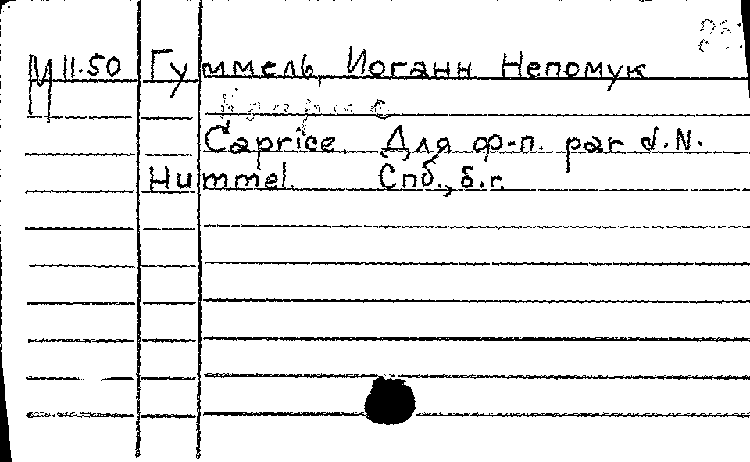 М 11.50 Гуммель, Иоганн Непомук
Каприс
Caprice. Для ф-п. par J.N.
Hummel. Спб., б.г.